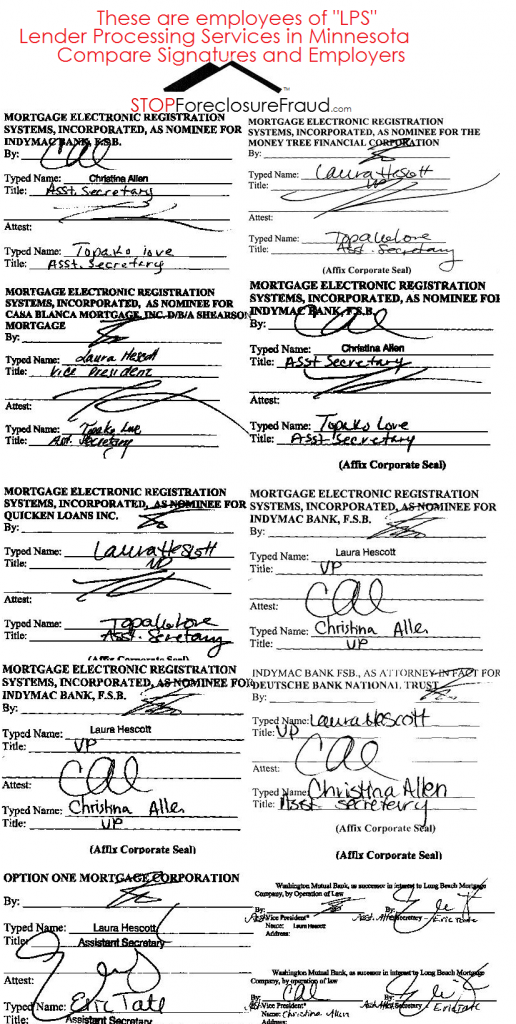 These are employees of "LPS"
Lender Processing Services in Minnesota
Compare Signatures and Employers
STOPForeclosureFraud.com
MORTGAGE ELECTRONIC REGISTRATION
SYSTEMS, INCORPORATED, AS NOMINEE FOR
INDYMAC BANK, F.S.B.
By:
Typed Name: Christina Allen
Title: Asst. Secretary
Attest:
Typed Name: Topako love
Title: Asst. Secretary
MORTGAGE ELECTRONIC REGISTRATION
SYSTEMS, INCORPORATED, AS NOMINEE FOR THE
MONEY TREE FINANCIAL CORPORATION
By:
Typed Name: Laura Hescott
Title: VP
Attest:
Typed Name: Topako Love
Title: Asst. Secretary
(Affix Corporate Seal)
MORTGAGE ELECTRONIC REGISTRATION
SYSTEMS, INCORPORATED, AS NOMINEE FOR
CASA BLANCA MORTGAGE, INC. D/B/A SHEARSON
MORTGAGE
By:
Typed Name: Laura Hescott
Title: Vice President
Attest:
Typed Name: Topako Love
Title: Asst. Secretary
MORTGAGE ELECTRONIC REGISTRATION
SYSTEMS, INCORPORATED, AS NOMINEE FOR
INDYMAC BANK, F.S.B.
By:
Typed Name: Christina Allen
Title: Asst Secretary
Attest:
Typed Name: Topako Love
Title: Asst Secretary
(Affix Corporate Seal)
MORTGAGE ELECTRONIC REGISTRATION
SYSTEMS, INCORPORATED, AS NOMINEE FOR
QUICKEN LOANS INC.
By:
Typed Name: Laura Hescott
Title: VP
Attest:
Typed Name: Topako Love
Title: Asst. Secretary
(Affix Corporate Seal)
MORTGAGE ELECTRONIC REGISTRATION
SYSTEMS, INCORPORATED, AS NOMINEE FOR
INDYMAC BANK, F.S.B.
By:
Typed Name: Laura Hescott
Title: VP
Attest:
Typed Name: Christina Allen
Title: VP
MORTGAGE ELECTRONIC REGISTRATION
SYSTEMS, INCORPORATED, AS NOMINEE FOR
INDYMAC BANK, F.S.B.
By:
Typed Name: Laura Hescott
Title: VP
Attest:
Typed Name: Christina Allen
Title: VP
(Affix Corporate Seal)
INDYMAC BANK FSB., AS ATTORNEY IN FACT FOR
DEUTSCHE BANK NATIONAL TRUST
By:
Typed Name: Laura Hescott
Title: VP
Attest:
Typed Name: Christina Allen
Title: Asst Secretary
(Affix Corporate Seal)
(Affix Corporate Seal)
OPTION ONE MORTGAGE CORPORATION
By:
Typed Name: Laura Hescott
Title: Assistant Secretary
Attest:
Typed Name: Eric Tate
Title: Assistant Secretary
Washington Mutual Bank, as successor in interest to Long Beach Mortgage
Company, by Operation of Law
By: By:
Asst Vice President* Asst. Secretary - Eric Tate
Name: Laura Hescott
Address:
Washington Mutual Bank, as successor in interest to Long Beach Mortgage
Company, by operation of law
By: By:
Asst Vice President* Secretary - Eric Tate
Name: Christina Allen
Address: